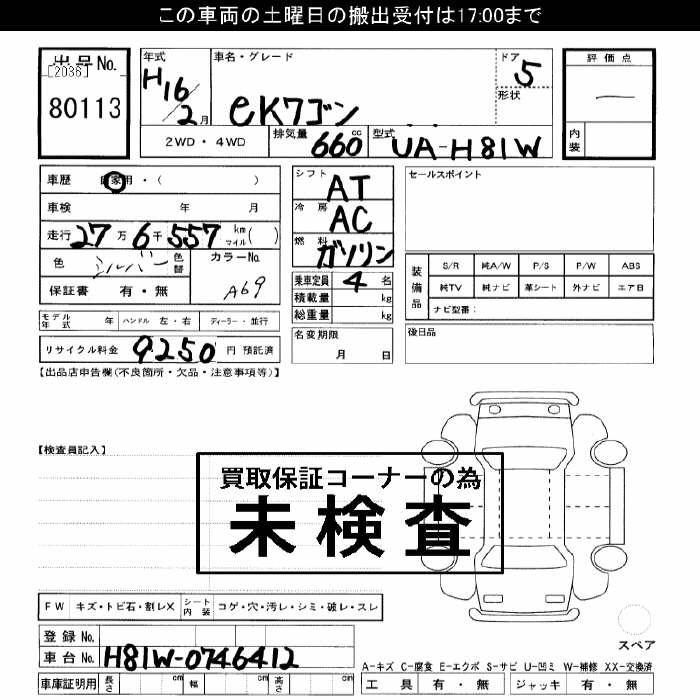 この車両の土曜日の搬出受付は17:00まで
出品No.
[2036]
80113
年式
H16/2月
車名・グレード
eKワゴン
ドア
5
形状
評価点
—
内装
2WD・4WD
排気量
660cc
型式
UA-H81W
車歴 自家用・( )
車検 年 月
走行 27万6千557 km マイル( )
色 シルバー 色替
カラーNo.
A69
保証書 有・無
シフト
AT
冷房
AC
燃料
ガソリン
乗車定員 4名
積載量 kg
総重量 kg
名変期限
月 日
セールスポイント
装備品
S/R 純A/W P/S P/W ABS
純TV 純ナビ 革シート 外ナビ エアB
ナビ型番:
後日品
モデル年式 年 ハンドル 左・右 ディーラー・並行
リサイクル料金 9250 円 預託済
【出品店申告欄(不良箇所・欠品・注意事項等)】
【検査員記入】
買取保証コーナーの為
未検査
FW キズ・トビ石・割レX シート内装 コゲ・穴・汚レ・シミ・破レ・スレ
登録No.
車台No. H81W-0746412
車庫証明用 長さ cm 幅 cm 高さ cm
スペア
A-キズ C-腐食 E-エクボ S-サビ U-凹ミ W-補修 XX-交換済
工具 有・無 ジャッキ 有・無